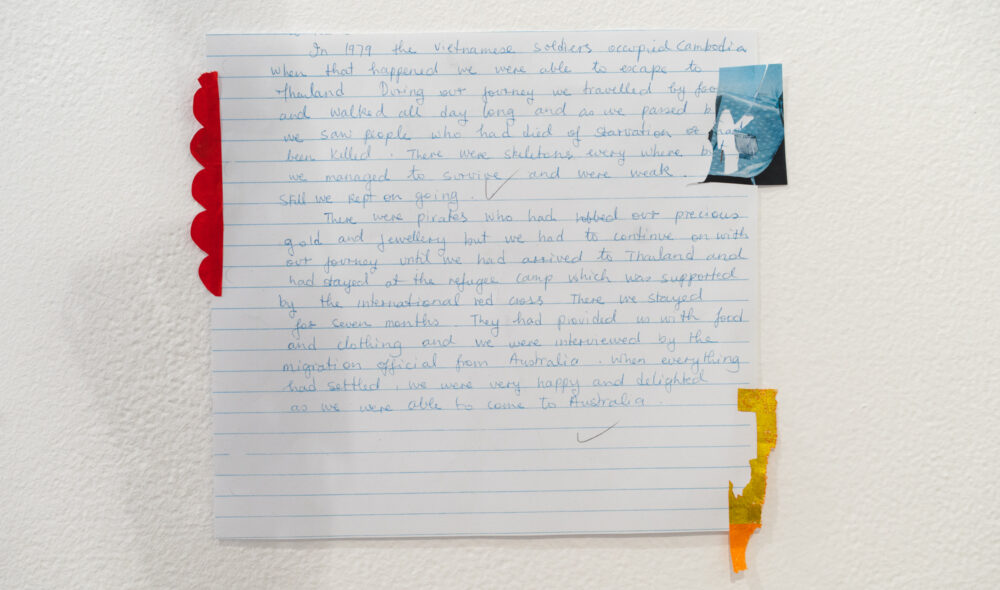 In 1979 the vietnamese soldiers occupied Cambodia
when that happened we were able to escape to
Thailand During our journey we travelled by
and walked all day long and as we passed
we saw people who had died of starvation or
been killed. There were skeletons every where
we managed to survive and were weak.
still we kept on going.
There were pirates who had robbed our precious
gold and jewellery but we had to continue on with
our journey until we had arrived to Thailand and
had stayed at the refugee camp which was supported
by the international red cross There we stayed
for seven months. They had provided us with food
and clothing and we were interviewed by the
migration official from Australia. When everything
had settled, we were very happy and delighted
as we were able to come to Australia.